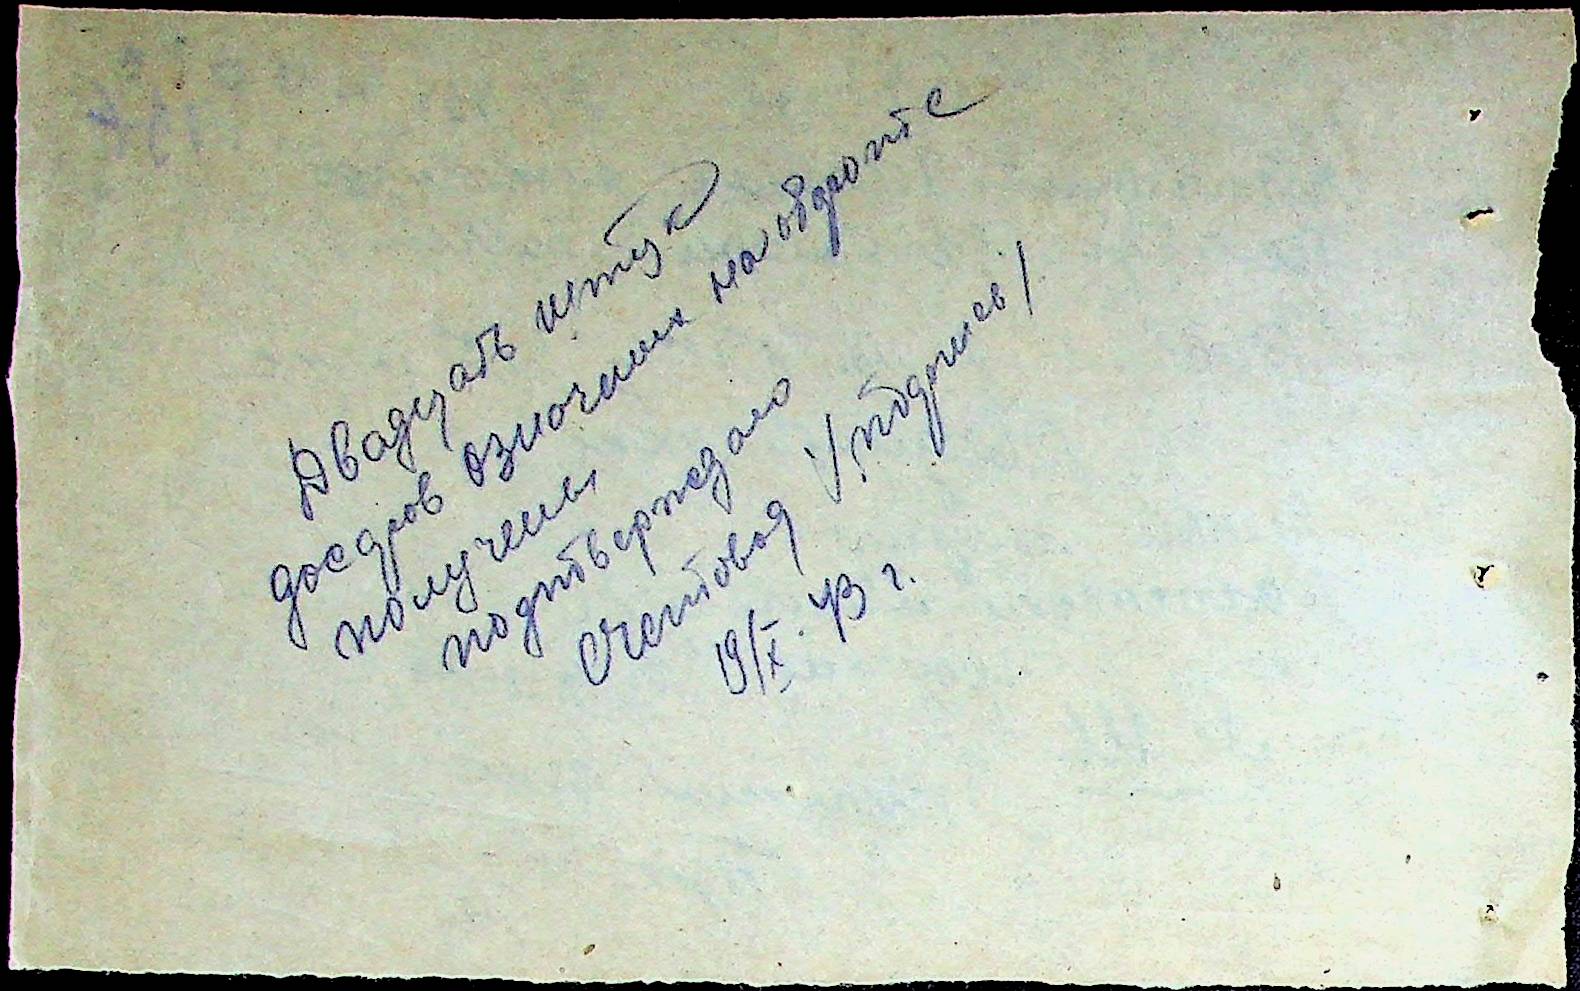 Двадцать штук
досдров означеных на обдроте
получены
подтверждаю
счетовод /подпись/
19/X. 43 г.